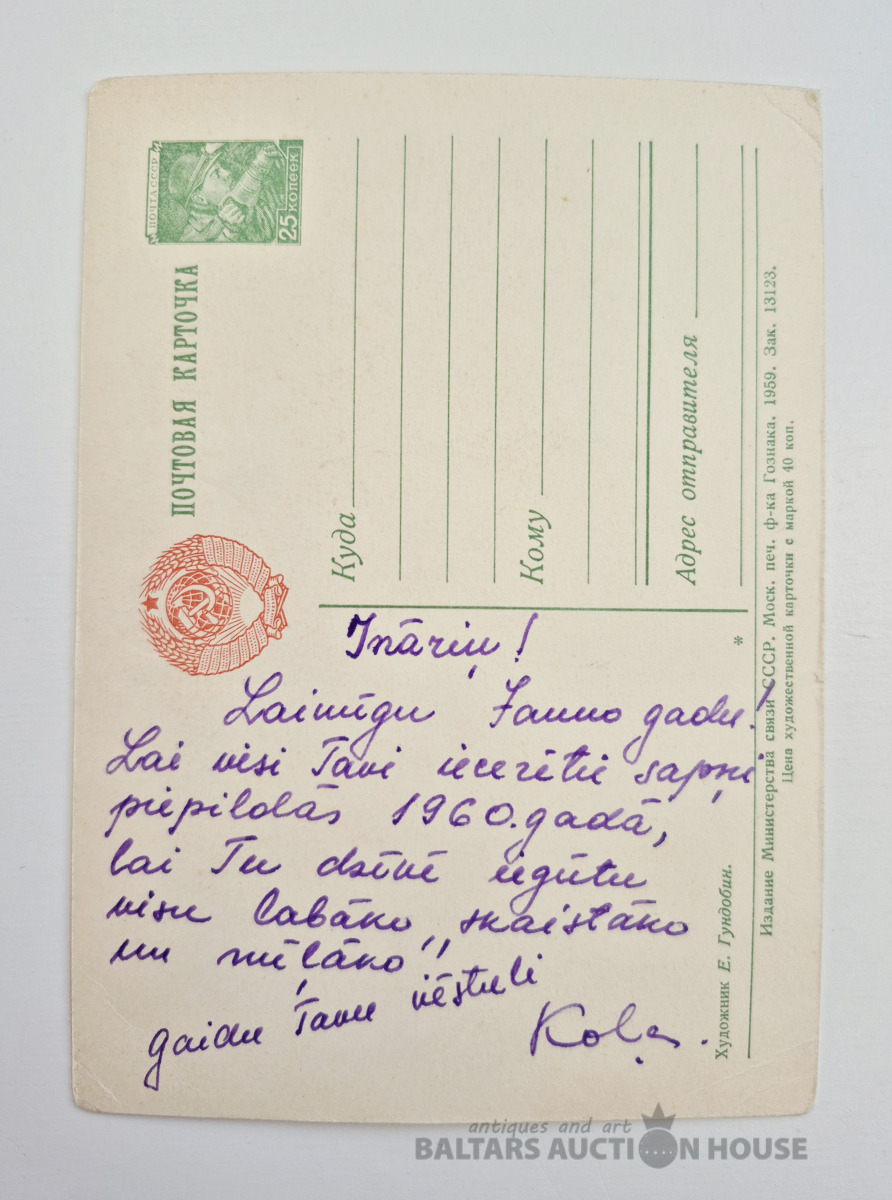 ПОЧТА СССР
25 копеек
ПОЧТОВАЯ КАРТОЧКА
Куда
Кому
Адрес отправителя
Ināriņ!
Laimīgu Jauno gadu!
Lai visi Tavi iecerētie sapņi
piepildās 1960. gadā,
lai Tu dzīvē iegūtu
visu labāko, skaistāko
un mīļāko!
gaidu Tavu vēstuli
*
Художник Е. Гундобин.
Издание Министерства связи СССР. Моск. печ. ф-ка Гознака. 1959. Зак. 13123.
Цена художественной карточки с маркой 40 коп.
antiques and art
BALTARS AUCTION HOUSE